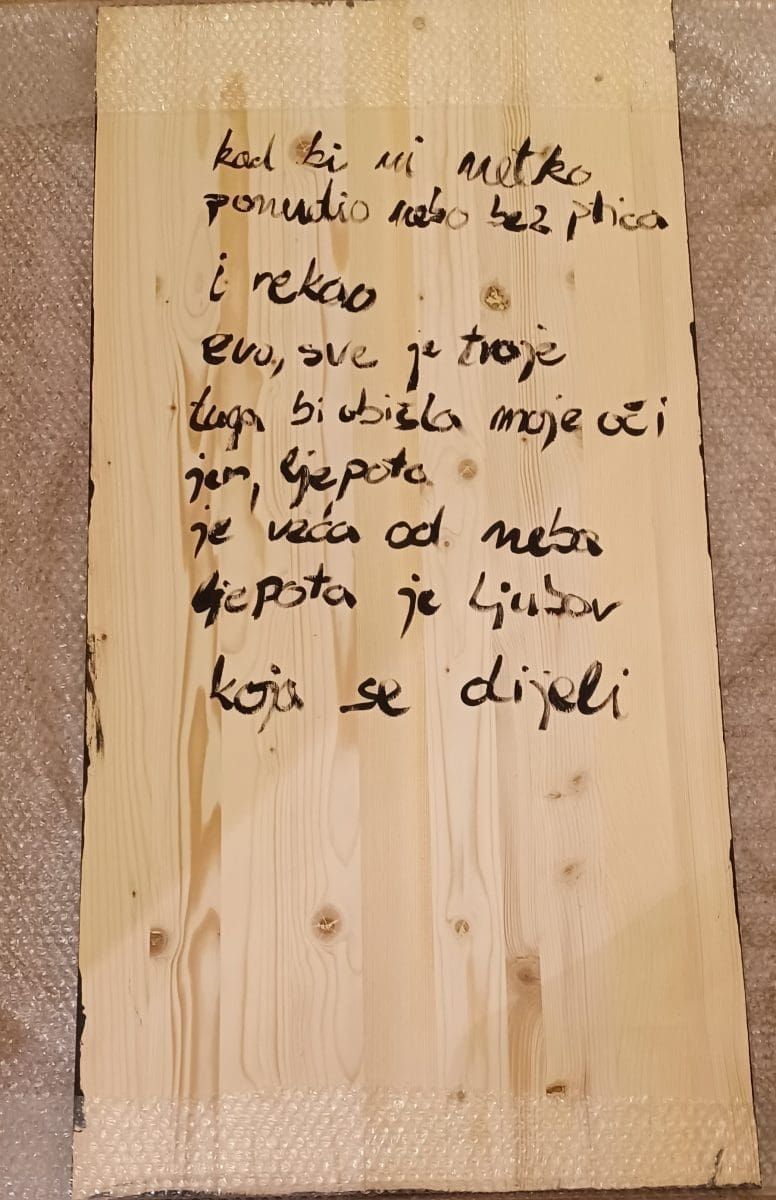 kad bi mi netko
ponudio nebo bez ptica
i rekao
evo, sve je tvoje
tuga bi obišla moje oči
jer, ljepota
je veća od neba
ljepota je ljubav
koja se dijeli